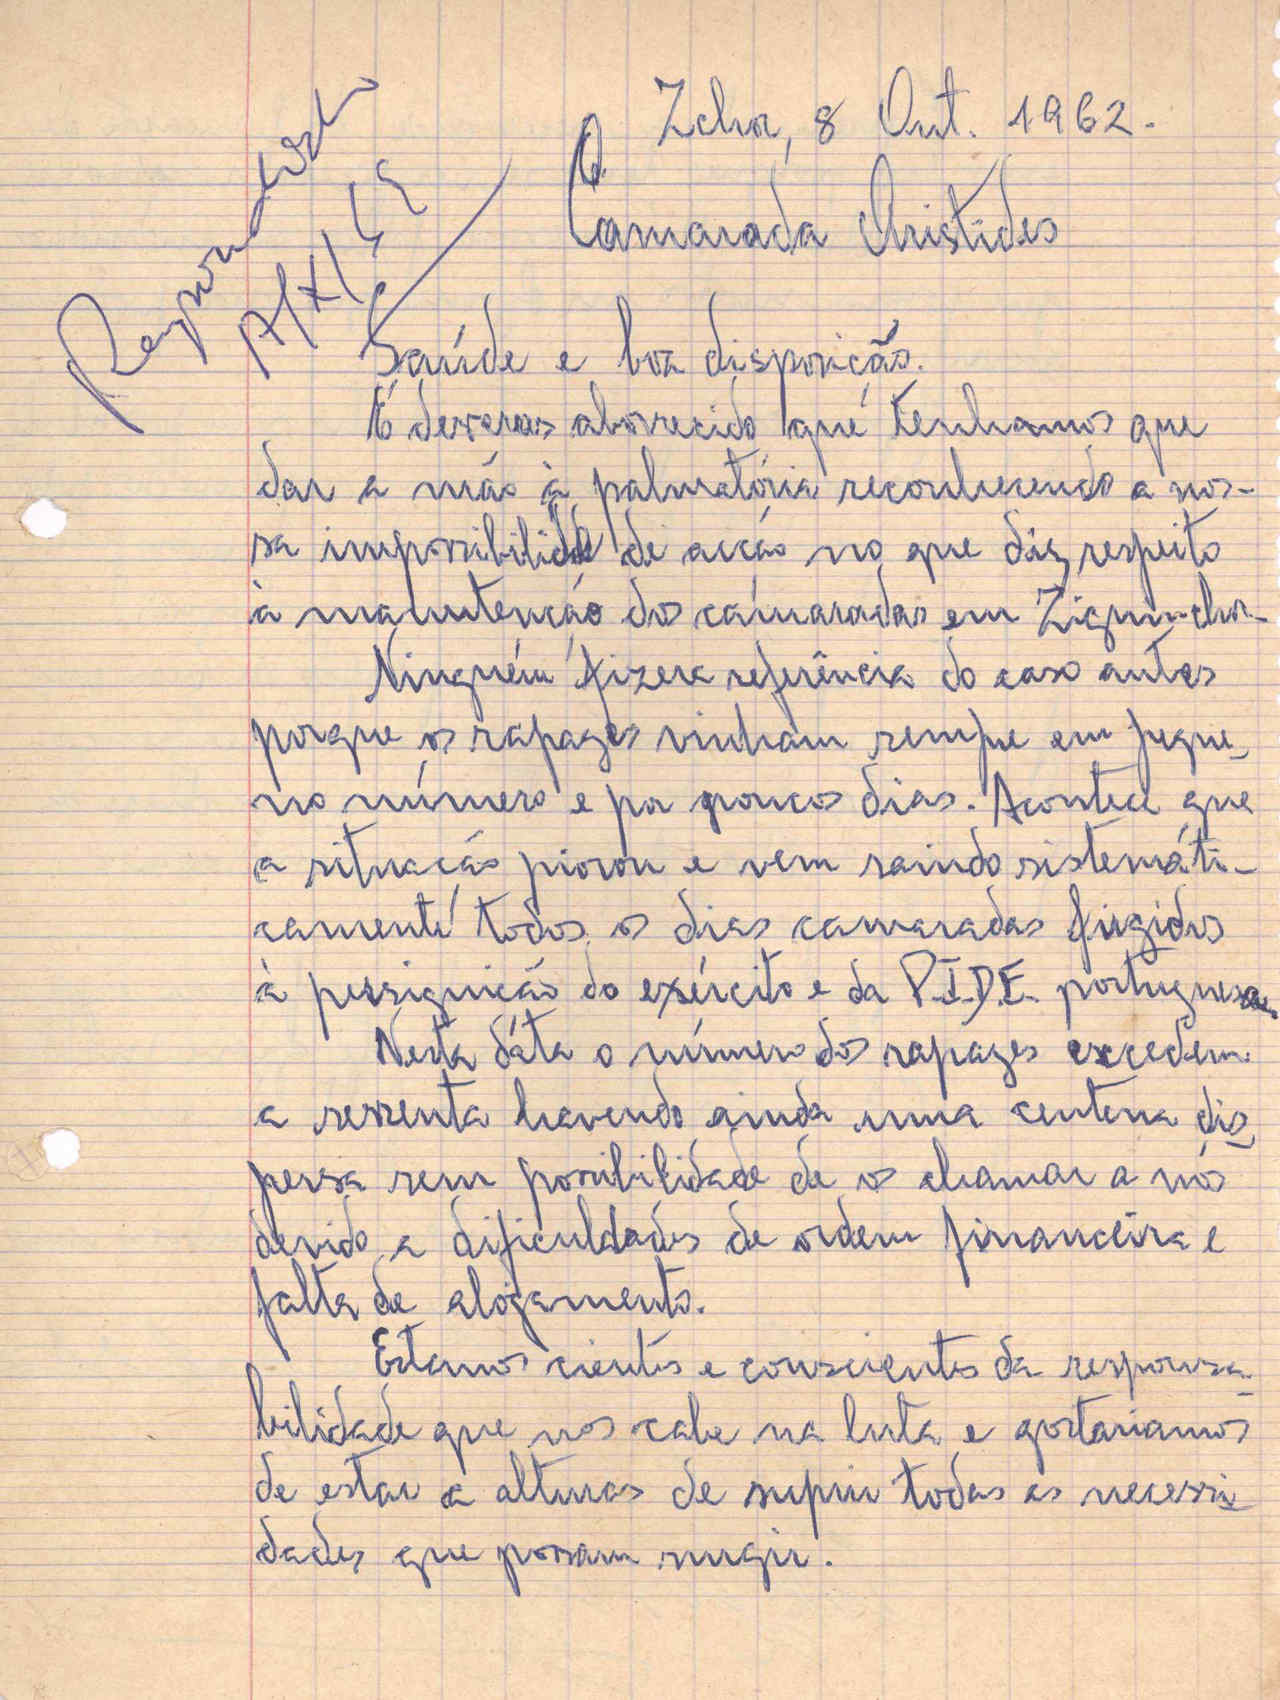 Zchor, 8 Out. 1962.
Respondido
Camarada Aristides
Saúde e boa disposição.
É deveras aborrecido que tenhamos que
dar a mão à palmatória reconhecendo a nos-
sa impossibilidade de acção no que diz respeito
à manutenção dos camaradas em Ziguinchor.
Ninguém fizera referência do caso antes
porque os rapazes vinham sempre em peque-
no número e por poucos dias. Acontece que
a situação piorou e vem saindo sistemáti-
camente todos os dias camaradas fugidos
à persiguição do exército e da P.I.D.E. portuguesa.
Nesta dáta o número dos rapazes excedem
a sessenta havendo ainda uma centena dis-
persa sem possibilidade de os chamar a nós
devido a dificuldades de ordem financeira e
falta de alojamento.
Estamos cientes e conscientes da responsa-
bilidade que nos cabe na luta e gostariamos
de estar a alturas de suprir todas as necessi-
dades que possam surgir.